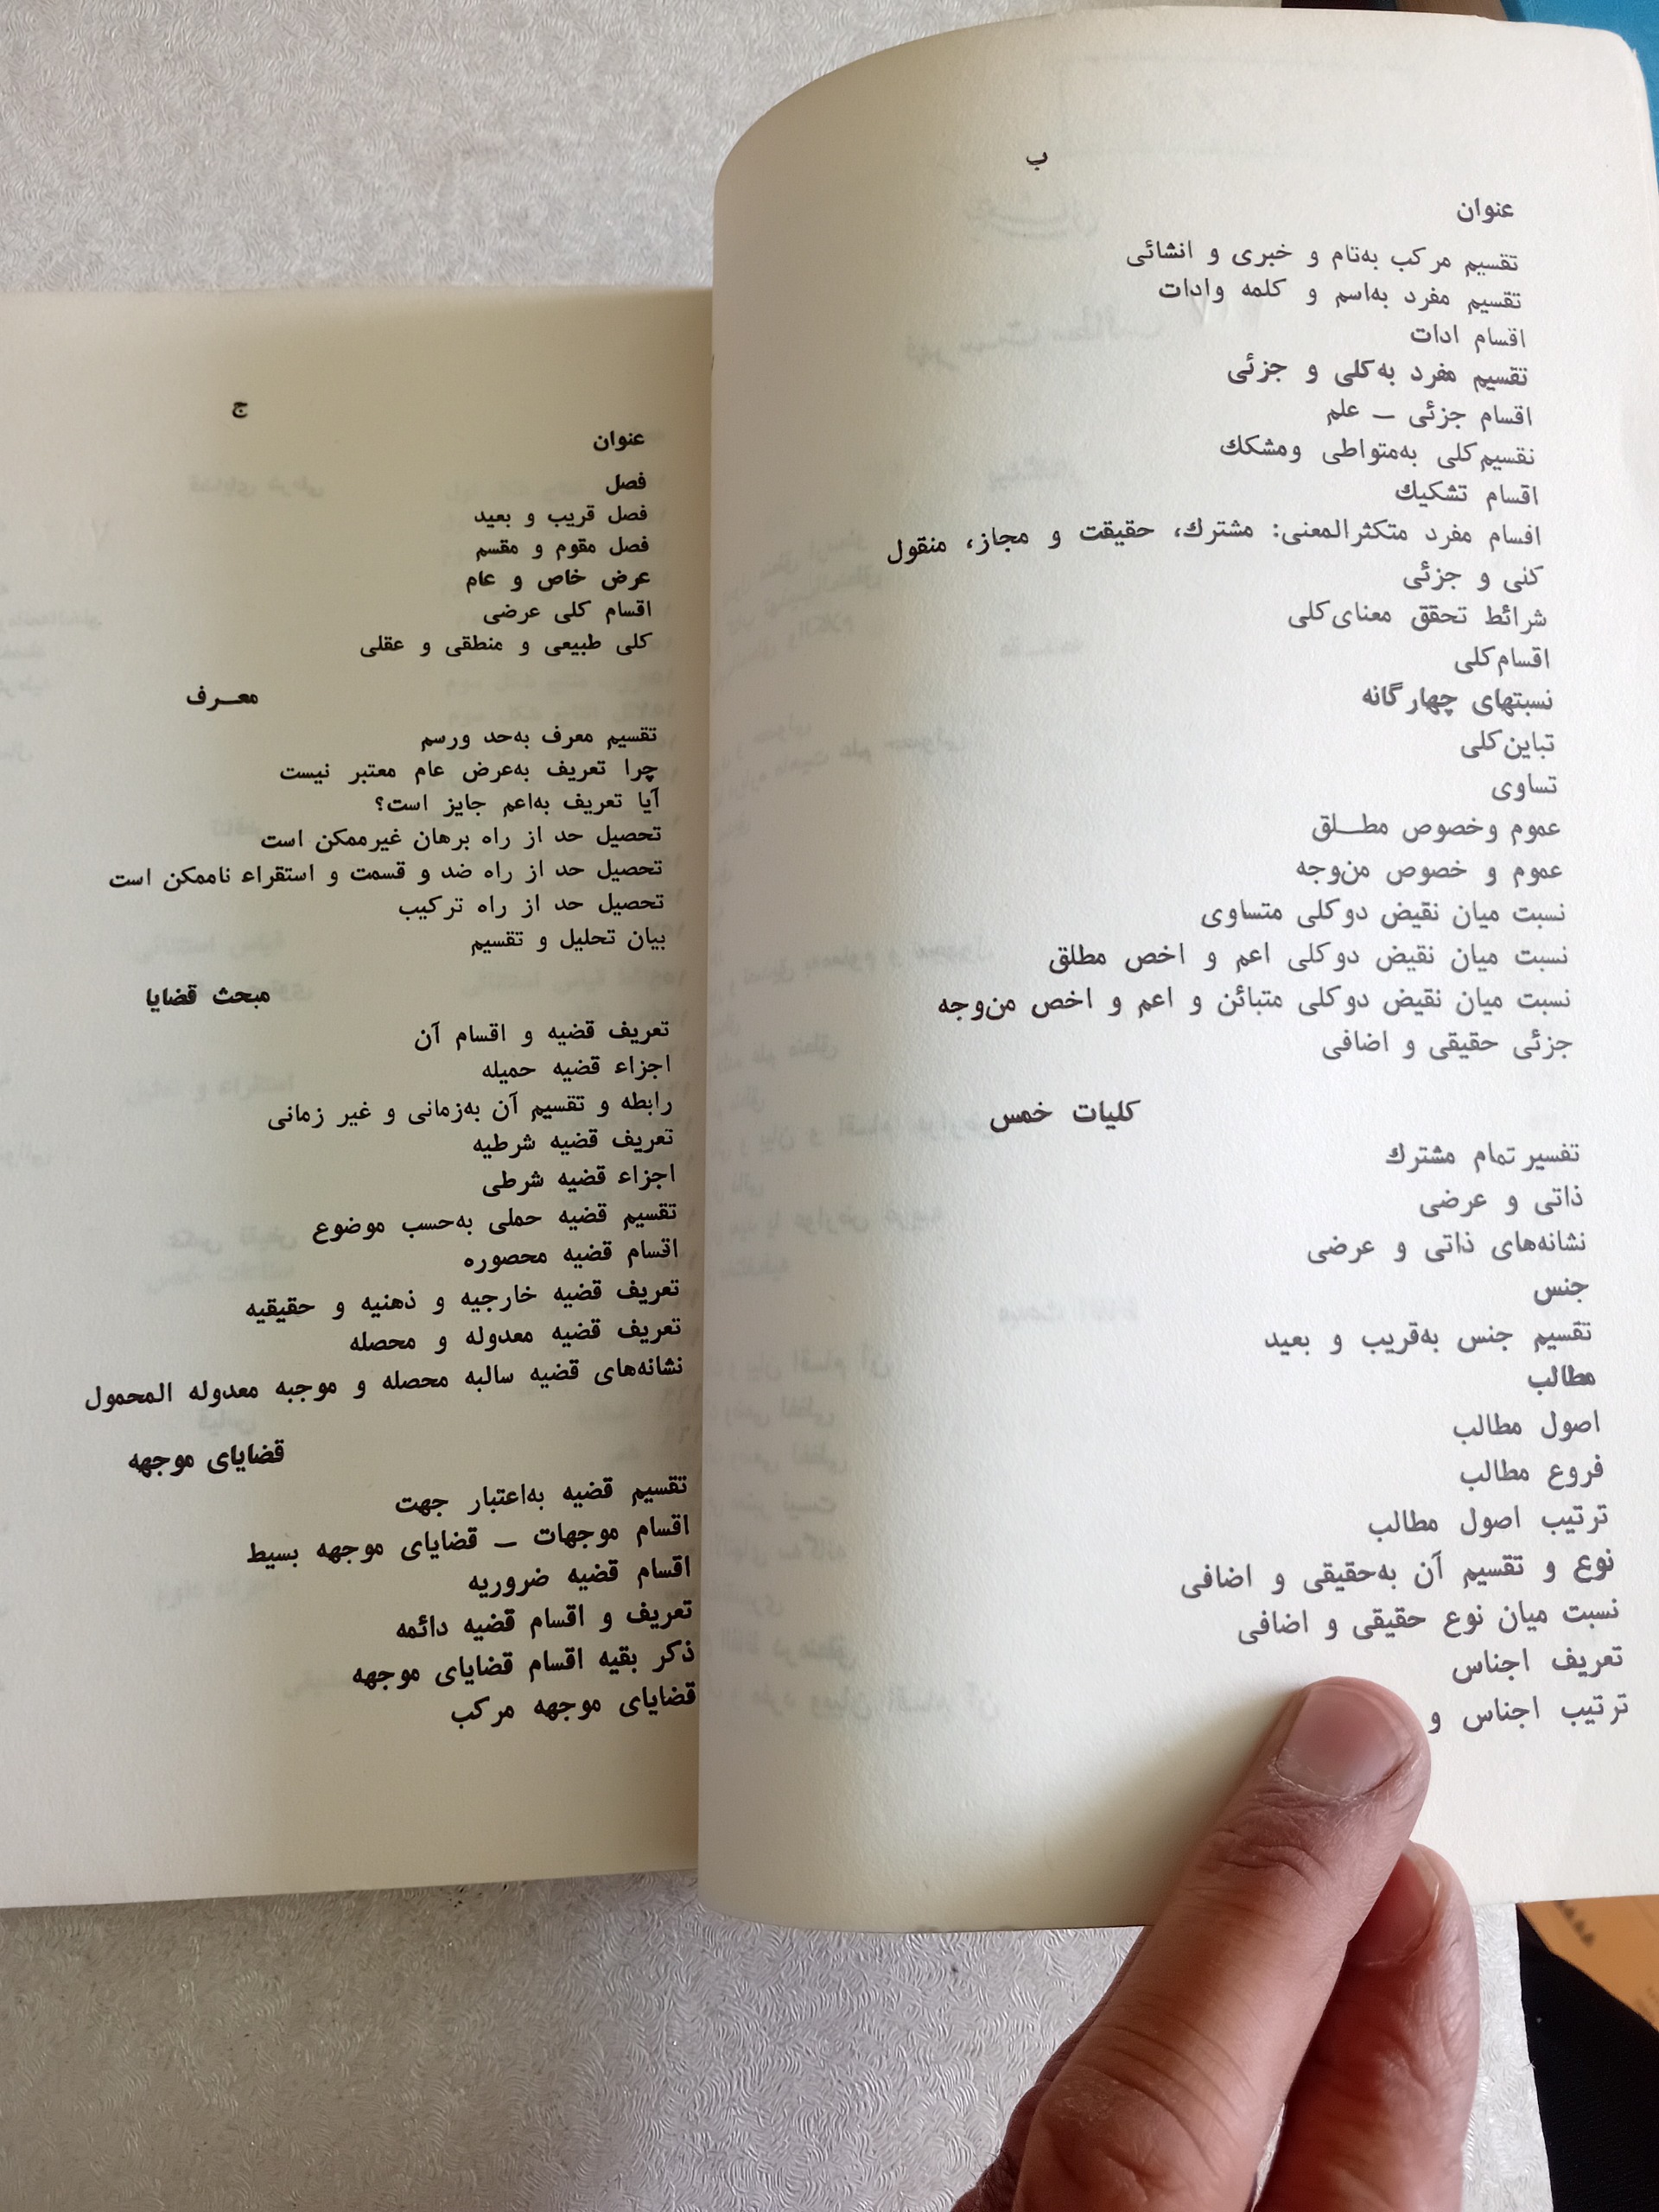 ب
عنوان
تقسیم مرکب به‌تام و خبری و انشائی
تقسیم مفرد به‌اسم و کلمه وادات
اقسام ادات
تقسیم مفرد به‌کلی و جزئی
اقسام جزئی — علم
نقسیم‌کلی به‌متواطی ومشکك
اقسام تشکیك
افسام مفرد متکثرالمعنی: مشترك، حقیقت و مجاز، منقول
کنی و جزئی
شرائط تحقق معنای‌کلی
اقسام‌کلی
نسبتهای چهارگانه
تباین‌کلی
تساوی
عموم وخصوص مطلق
عموم و خصوص من‌وجه
نسبت میان نقیض دوکلی متساوی
نسبت میان نقیض دوکلی اعم و اخص مطلق
نسبت میان نقیض دوکلی متبائن و اعم و اخص من‌وجه
جزئی حقیقی و اضافی
کلیات خمس
تفسیر تمام مشترك
ذاتی و عرضی
نشانه‌های ذاتی و عرضی
جنس
تقسیم جنس به‌قریب و بعید
مطالب
اصول مطالب
فروع مطالب
ترتیب اصول مطالب
نوع و تقسیم آن به‌حقیقی و اضافی
نسبت میان نوع حقیقی و اضافی
تعریف اجناس
ترتیب اجناس و
ج
عنوان
فصل
فصل قریب و بعید
فصل مقوم و مقسم
عرض خاص و عام
اقسام کلی عرضی
کلی طبیعی و منطقی و عقلی
معرف
تقسیم معرف به‌حد ورسم
چرا تعریف به‌عرض عام معتبر نیست
آیا تعریف به‌اعم جایز است؟
تحصیل حد از راه برهان غیرممکن است
تحصیل حد از راه ضد و قسمت و استقراء ناممکن است
تحصیل حد از راه ترکیب
بیان تحلیل و تقسیم
مبحث قضایا
تعریف قضیه و اقسام آن
اجزاء قضیه حمیله
رابطه و تقسیم آن به‌زمانی و غیر زمانی
تعریف قضیه شرطیه
اجزاء قضیه شرطی
تقسیم قضیه حملی به‌حسب موضوع
اقسام قضیه محصوره
تعریف قضیه خارجیه و ذهنیه و حقیقیه
تعریف قضیه معدوله و محصله
نشانه‌های قضیه سالبه محصله و موجبه معدوله المحمول
قضایای موجهه
تقسیم قضیه به‌اعتبار جهت
اقسام موجهات — قضایای موجهه بسیط
اقسام قضیه ضروریه
تعریف و اقسام قضیه دائمه
ذکر بقیه اقسام قضایای موجهه
قضایای موجهه مرکب